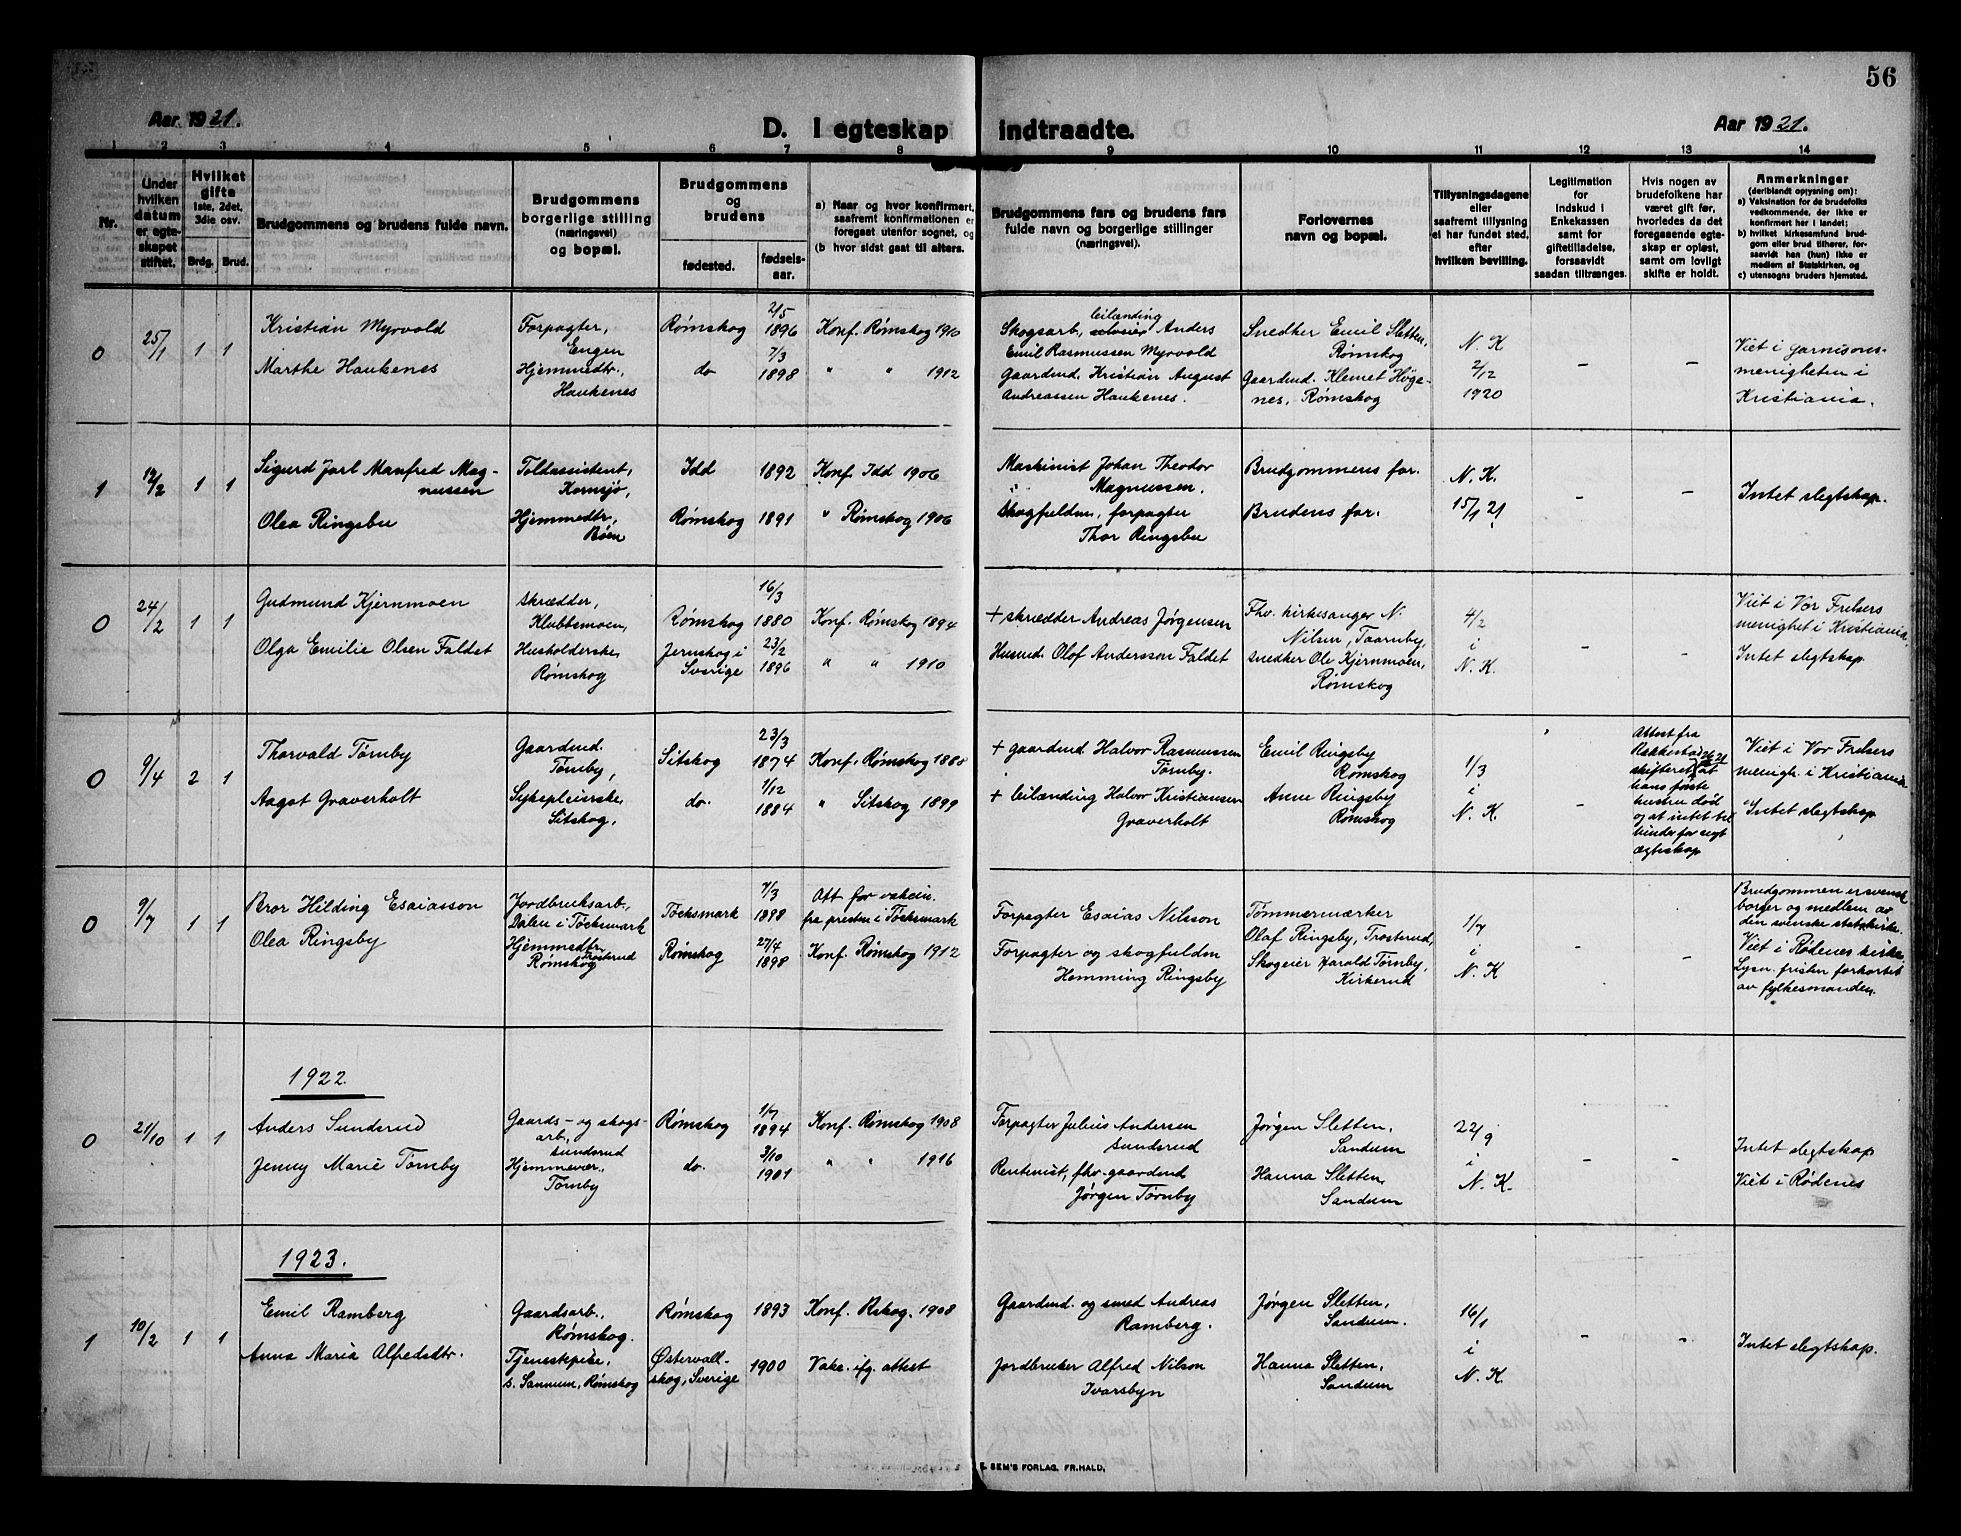 56
Aar 1921.
D. I egteskap indtraadte.
Aar 1921.
1 2 3 4 5 6 7 8 9 10 11 12 13 14
Nr.
Under
hvilken
datum
er egte-
skapet
stiftet.
Hvilket
gifte
1ste, 2det,
3die osv.
Brdg. Brud.
Brudgommens og brudens fulde navn.
Brudgommens
borgerlige stilling
(næringsvei)
og bopæl.
Brudgommens
og
brudens
fødested.
fødsels-
aar.
a) Naar og hvor konfirmert,
saafremt konfirmationen er
foregaat utenfor sognet, og
(b hvor sidst gaat til alters.
Brudgommens fars og brudens fars
fulde navn og borgerlige stillinger
(næringsvei).
Forlovernes
navn og bopæl.
Tillysningsdagene
eller
saafremt tillysning
ei har fundet sted,
efter
hvilken bevilling.
Legitimation
for
Indskud i
Enkekassen
samt for
giftetilladelse,
forsaavidt
saadan tiltrænges.
Hvis nogen av
brudefolkene har
været gift før,
hvorledes da det
foregaaende egte-
skap er opløst,
samt om lovligt
skifte er holdt.
Anmerkninger
(deriblandt opjysning om):
a) Vaksination for de brudefolks
vedkommende, der ikke er
konfirmert her i landet;
b) hvilket kirkesamfund brud-
gom eller brud tilhører, for-
saavidt han (hun) ikke er
medlem af Statskirken, og
c) utensogns bruders hjemsted.
0 25/1 1 1
Kristian Myrvold
Marthe Haukenes
Forpagter,
Engen
Hjemmedtr.,
Haukenes
Rømskog
do
2/5
1896
7/3
1898
Konf. Rømskog 1910
" " 1912
Skogsarb, leilænding Anders
Emil Rasmussen Myrvold
Gaardmd. Kristian August
Andreassen Haukenes.
Snedker Emil Sletten,
Rømskog
Gaardmd. Klemet Høge-
nes, Rømskog
N. K
2/12
1920
-
-
Viet i garnisons-
menigheten i
Kristiania.
1 12/2 1 1
Sigurd Jarl Manfred Mag-
nussen
Olea Ringsbu
Toldassistent,
Kornsjø,
Hjemmedtr,
Bøen
Idd
Rømskog
1892
1891
Konf. Idd 1906
" Rømskog 1906
Maskinist Johan Theodor
Magnussen,
Skogfuldm, forpagter
Thor Ringsbu
Brudgommens far.
Brudens far.
N. K.
15/1 21
-
-
Intet slegtskap.
0 24/2 1 1
Gudmund Kjernmoen
Olga Emilie Olsen Faldet
Skrædder,
Klubbmoen,
Husholderske,
Rømskog
Rømskog
Jernskog i
Sverige
16/3
1880
23/2
1896
Konf. Rømskog 1894
" " 1910
+ skrædder Andreas Jørgensen
Husmd. Olof Andersson Faldet
Fhv. kirkesanger N.
Nilsen, Taarnby,
snedker Ole Kjernmoen,
Rømskog
4/2
i
N. K.
-
-
Viet i Vor Frelsers
menighet i Kristiania
Intet slegtskap.
0 9/4 2 1
Thorvald Tørnby
Aagot Graverholt
Gaardmd.
Tørnby,
Sykepleierske,
Sitskog,
Sitskog
do.
23/3
1874
1/12
1884
Konf. Rømskog 1888
" Sitskog 1899
+ gaardmd Halvor Rasmussen
Tørnby.
+ leilænding Halvor Kristiansen
Graverholt
Emil Ringsby
Rømskog
Anne Ringsby
Rømskog
1/3
i
N. K.
-
Attest fra
Rakkestad
skifteret at
hans første
hustru død
og at intet til
hinder for nyt
ægteskap
Viet i Vor Frelsers
menigh. i Kristiania
Intet slegtskap
0 9/7 1 1
Bror Hilding Esaiasson
Olea Ringsby
Jordbruksarb.,
Dalen i Töcksmark
Hjemmedtr.
Trosterud
Rømskog
Töcksmark
Rømskog
7/3
1898
27/4
1898
Att for vakcin.
fra presten i Töcksmark
Konf. Rømskog 1912
Forpagter Esaias Nilsson
Forpagter og skogfuldm
Hemming Ringsby
Tømmermærker
Olaf Ringsby, Trosterud,
Skogeier Harald Tørnby,
Kirkerud
1/7
i
N. K
-
-
Brudgommen er svensk
borger og medlem av
den svenske statskirke.
Viet i Rødenes kirke
Lysn. fristen forkortet
av fylkesmanden.
1922.
0 21/10 1 1
Anders Sundsrud
Jenny Marie Tørnby
Gaards- og skogs-
arb,
Sundsrud
Hjemmevær.,
Tørnby
Rømskog
do.
1/7
1894
3/10
1901
Konf. Rømskog 1908
" " 1916
Forpagter Julius Andersen
Sundsrud
Rentenist, fhv. gaardmd
Jørgen Tørnby
Jørgen Sletten,
Sandum
Hanna Sletten,
Sandum
22/9
i
N. K.
-
-
Intet slegtskap
Viet i Rødenes
1923.
1 10/2 1 1
Emil Ramberg
Anna Maria Alfredsdtr.
Gaardsarb.,
Rømskog.
Tjenestepike,
s. Sannum, Rømskog
Rømskog
Østervall-
skog, Sverige
1893
1900
Konf. Rskog. 1908
Vakc. ifg. attest
Gaardmd. og smed Andreas
Ramberg.
Jordbruker Alfred Nilson
Ivarsbyn
Jørgen Sletten,
Sandum.
Hanna Sletten,
Sandum
16/1
i
N. K.
-
-
Intet slegtskap.
E. SEM'S FORLAG, FR.HALD,